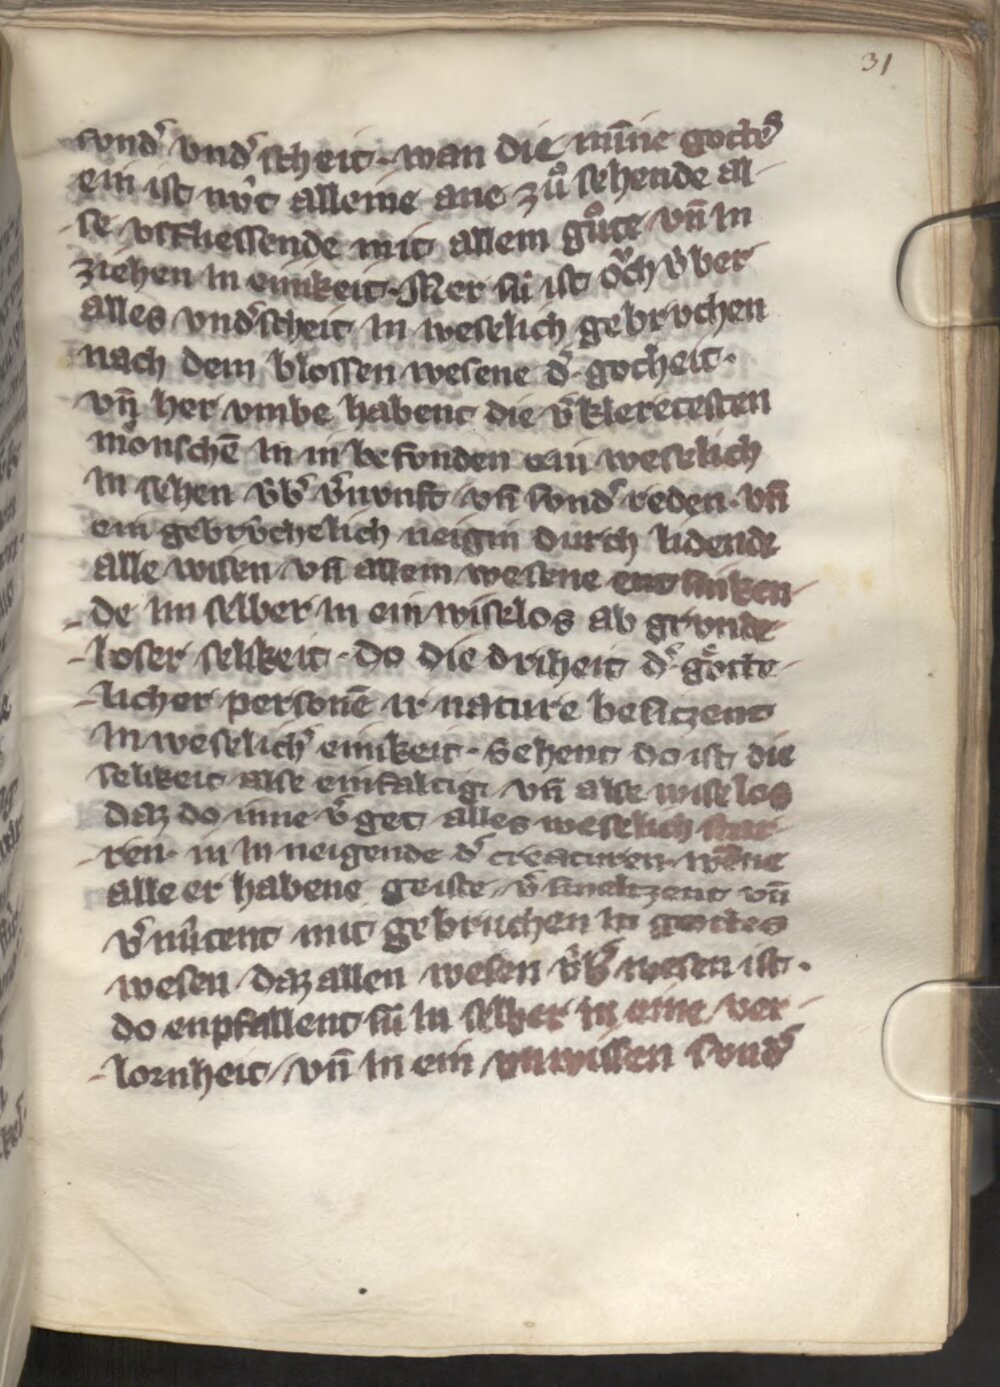 31
sundˀ vndˀscheit · wan die mīne gottes
ein ist nv̂t alleine ane zů sehende al-
se vsfliessende mit allem gůte vn̄ in
ziehen in einikeit · Mer sū ist oͮch v̂ber
alles vndˀscheit in weselich gebrvchen
nach dem blossen wesene dˀ gotheit ·
vn̄ her vmbe habent die vˀkleretesten
mönschē in in befunden ein weselich
in sehen v̂bˀ vˀnunft vn̄ sundˀ reden · vn̄
ein gebrv̂chelich neigin durch lidende
alle wisen vn̄ allem wesene entsinken-
de im selber in ein wiselos ab grvnde-
loser selikeit · do die driheit dˀ götte-
licher personē ir nature besitzent
in weselichˀ einikeit · Sehent do ist die
selikeit alse einfaltig vn̄ alse wiselos
daz do inne vˀget alles weselich star-
ren · in in neigende dˀ creaturen · wēne
alle er habene geiste vˀsmeltzent vn̄
vˀnûtent mit gebruchen in gottes
wesen daz allen wesen v̂bˀ wesen ist ·
do enpfallent sū in selber in eine ver-
lornheit / vn̄ in ein vnwissen sundˀ